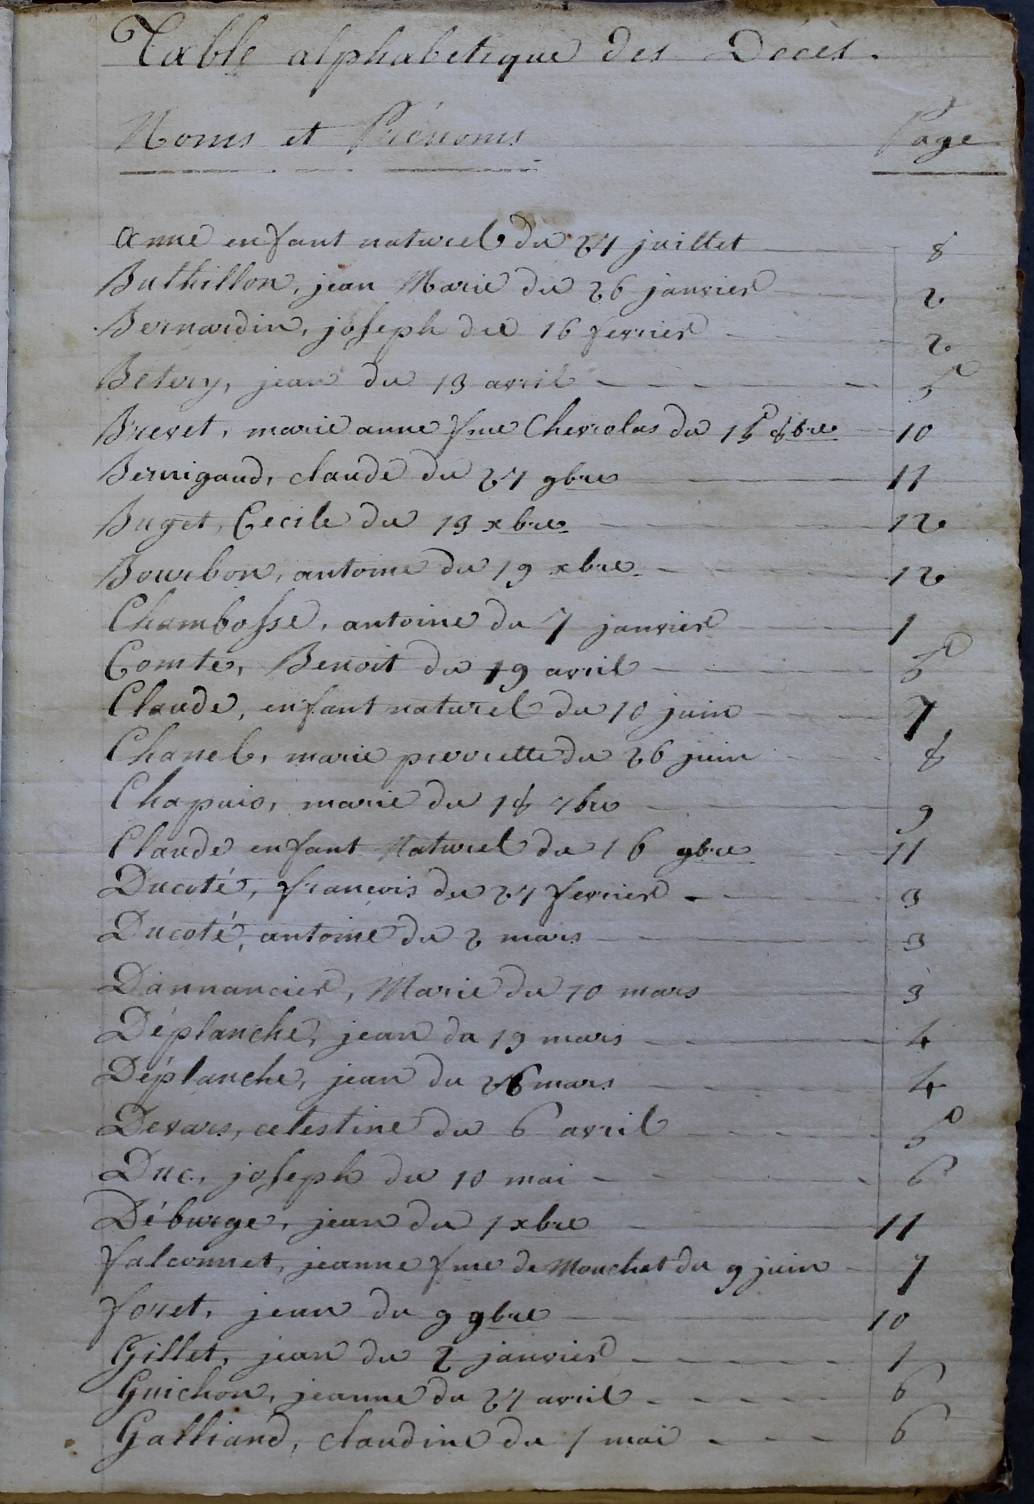 Table alphabetique des Décès.
Noms et Prénoms Page
Anne enfant naturel du 27 juillet 8
Buthillon, jean Marie du 26 janvier 2
Bernardin, joseph du 16 fevrier 2
Betuy, jean du 13 avril 5
Brevet, marie anne fme Chevrolas du 15 8bre 10
Bernigaud, claude du 27 9bre 11
Buget, Cecile du 13 xbre 12
Bourbon, antoine du 19 xbre 12
Chambosse, antoine du 7 janvier 1
Comte, Benoit du 19 avril 5
Claude, enfant naturel du 10 juin 7
Chanel, marie pierrette du 26 juin 8
Chapuis, marie du 18 7bre 9
Claude enfant Naturel du 16 9bre 11
Ducoté, françois du 27 fevrier 3
Ducoté, antoine du 2 mars 3
Dannancier, Marie du 10 mars 3
Déplanche, jean du 19 mars 4
Déplanche, jean du 26 mars 4
Devars, celestine du 6 avril 5
Duc, joseph du 10 mai 6
Déburge, jean du 1 xbre 11
falconnet, jeanne fme de Mouchet du 9 juin 7
foret, jean du 9 9bre 10
Gillet, jean du 2 janvier 1
Guichon, jeanne du 27 avril 6
Galliand, claudine du 1 mai 6